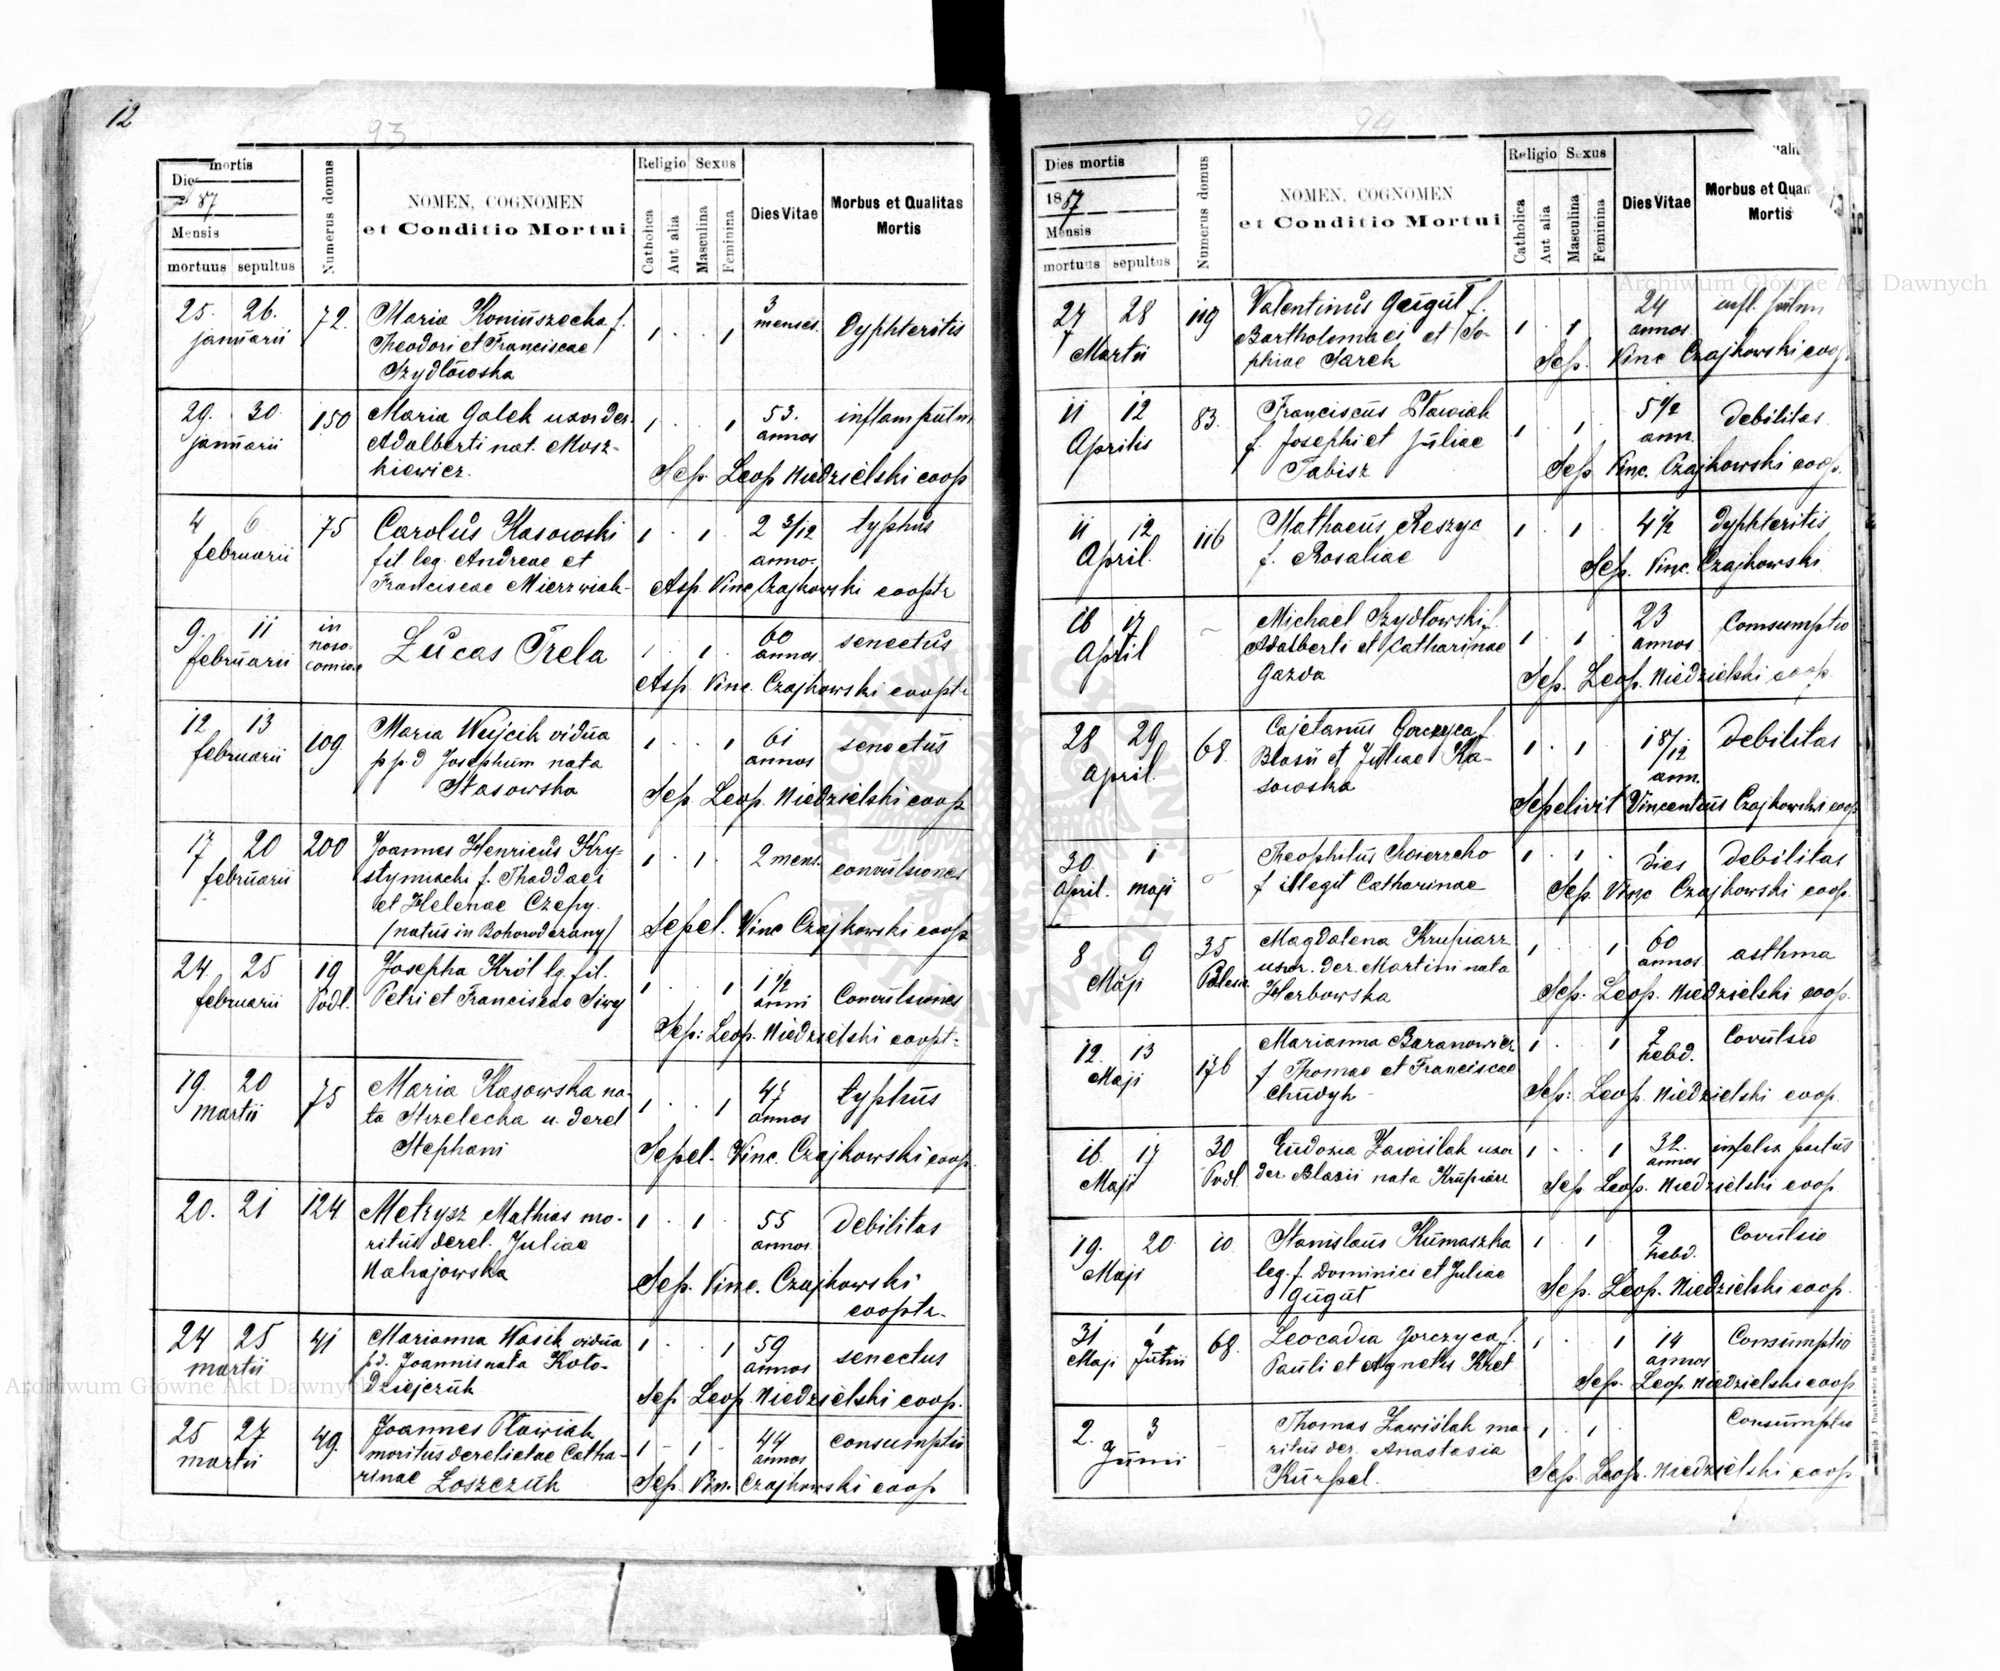 12
93
Dies mortis
1887
Mensis
mortuus sepultus
Numerus domus
NOMEN, COGNOMEN
et Conditio Mortui
Religio Sexus
Catholica
Aut alia
Masculina
Feminina
Dies Vitae
Morbus et Qualitas
Mortis
25. 26. 72. Maria Koniuszecka f. 1 . . 1 3 Dyphteritis
januarii Theodori et Franciscae menses.
Szydłowska
29. 30. 150 Maria Galek uxor der. 1 . . 1 53. inflam pulm
januarii Adalberti nat. Mosz- annos
kiewicz. Sep. Leop Niedzielski coop
4 6 75 Carolus Kasowski 1 . 1 . 2 3/12 typhus
februarii fil leg. Andreae et anno.
Franciscae Mierzwiak- Asp. Vinc Czajkowski cooptr
9. 11 in Lucas Trela 1 . 1 . 60 senectus
februarii noso- annos.
comio Asp. Vinc. Czajkowski cooptr
12 13 109 Maria Wujcik vidua 1 . . 1 61 senectus
februarii p p. d Josephum nata annos
Stasowska Sep. Leop. Niedzielski coop
17 20 200 Joannes Henricus Kry- 1 . 1 . 2 mens. convulsiones
februarii stymiacki f. Thaddaei
et Helenae Czepy.
/natus in Bohowderany/ Sepel. Vinc Czajkowski coop
24. 25 19 Josepha Król lg. fil. 1 . . 1 1 1/2 Convulsiones
februarii Podl. Petri et Franciscae Siwy anni
Sep: Leop. Niedzielski coopt:
19. 20 75 Maria Kasowska na- 1 . . 1 47 typhus
martii ta Strzelecka u. derel annos
Stephani Sepel. Vinc. Czajkowski coop.
20. 21 124 Metrysz Mathias ma- 1 . 1 . 55 Debilitas
ritus derel. Juliae annos
Nahajowska Sep. Vinc. Czajkowski
cooptr.
24 25 41 Marianna Wasik vidua 1 . . 1 59 senectus
martii p d. Joannis nata Koło- annos
dziejczuk Sep Leop Niedzielski coop.
25 27 49. Joannes Pławiak 1 - 1 - 44 consumptio
martii maritus derelictae Catha- annos
rinae Łoszczuk Sep. Vinc. Czajkowski coop
94
Dies mortis
1887
Mensis
mortuus sepultus
Numerus domus
NOMEN, COGNOMEN
et Conditio Mortui
Religio Sexus
Catholica
Aut alia
Masculina
Feminina
Dies Vitae
Morbus et Quali
Mortis
27 28 119 Valentinus Guigul f. 1 . 1 24 infl. pulm
Martii Bartholomaei et So- annos
phiae Sarek Sep. Vinc Czajkowski coop.
11 12 83. Franciscus Pławiak 1 . 1 . 5 1/2 Debilitas
Aprilis f. Josephi et Juliae ann.
Tabisz Sep Vinc. Czajkowski coop.
11 12 116 Mathaeus Reszyc 1 . 1 . 4 1/2 Dyphteritis
April. f. Rosaliae Sep. Vinc. Czajkowski
16 17 Michael Szydłowski f. 1 . 1 . 23 Comsumptio
April Adalberti et Catharinae annos
Gazda Sep. Leop. Niedzielski coop.
28 29 68. Cajetanus Gorczyca f. 1 . 1 . 1 8/12 Debilitas
April. Blasii et Juliae Ka- ann.
sowska Sepelivit Vincentius Czajkowski coop
30. 1 Theophilus 1 . 1 . 1 Debilitas
April. maji f illegit Catharinae dies
Sep. Vinc Czajkowski coop.
8 9 35 Magdalena Krupiarz 1 . . 1 60 asthma
Maji uxor. der. Martini nata annos
Herbowska Sep: Leop. Niedzielski coop.
12. 13 176 Marianna Baranowicz 1 . . 1 2 Covulsio
Maji f Thomae et Franciscae hebd.
Chudyk - Sep: Leop. Niedzielski coop.
16. 17 30 Eudoxia Zawiślak uxor 1 . . 1 32. infelix partus
Maji Podl. der Blasii nata Krupiarz annos
Sep Leop. Niedzielski coop
19. 20. 10 Stanislaus Kumaszka 1 . 1 . 2 Covulsio
Maji leg. f. Dominici et Juliae hebd.
Gugut Sep. Leop. Niedzielski coop.
31 1 68. Leocadia Gorczyca f. 1 . . 1 14 Consumptio
Maji Junii Pauli et Agnetis Kret annos
Sep. Leop Niedzielski coop
2. 3 Thomas Zawiślak ma- 1 . 1 . Consumptio
Junii ritus der. Anastasia
Kurpel. Sep. Leop. Niedzielski coop
Archiwum Główne Akt Dawnych
Archiwum Główne Akt Dawnych